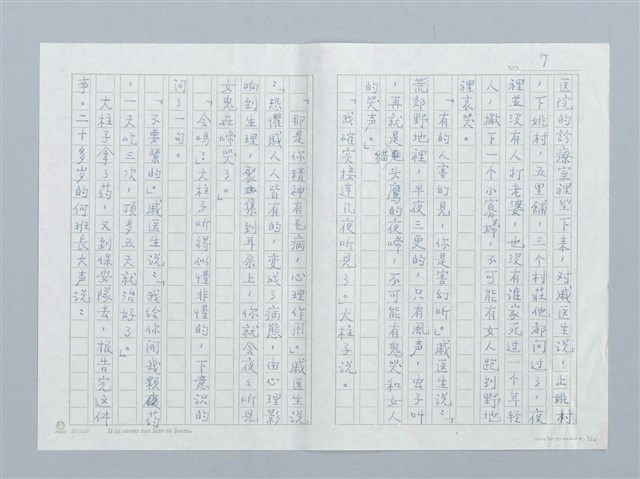 NO. 7
医院的診療室裡坐下来，对戚医生說，上姚村
，下姚村，五里舖，三个村莊他都问过了，夜
裡並没有人打老婆，也没有谁家死过一个年轻
人，撇下一个小寡婦，不可能有女人跑到野地
裡哀哭。
「有的人害幻見，你是害幻听。」戚医生說：「
荒郊野地裡，半夜三更的，只有風声，虫子叫
，再就是貓头鷹的夜啼，不可能有鬼哭和女人
的哭声。」
「我確实接連几夜听見了。」大柱子說。
「那是你精神有毛病，心理作用。」戚医生說
：「恐懼感人人皆有的，变成了病態，由心理影
响到生理，聚集到耳朵上，你就会夜夜听見
女鬼在啼哭了。」
「会嗎？」大柱子听得似懂非懂的，下意识的
问了一句。
「不要緊的。」戚医生說：「我给你開幾顆药
，一天吃三次，頂多五天就治好了。」
大柱子拿了药，又到保安隊去，报告完这件
事。二十多岁的何班長大声說：
It is never too late to learn.